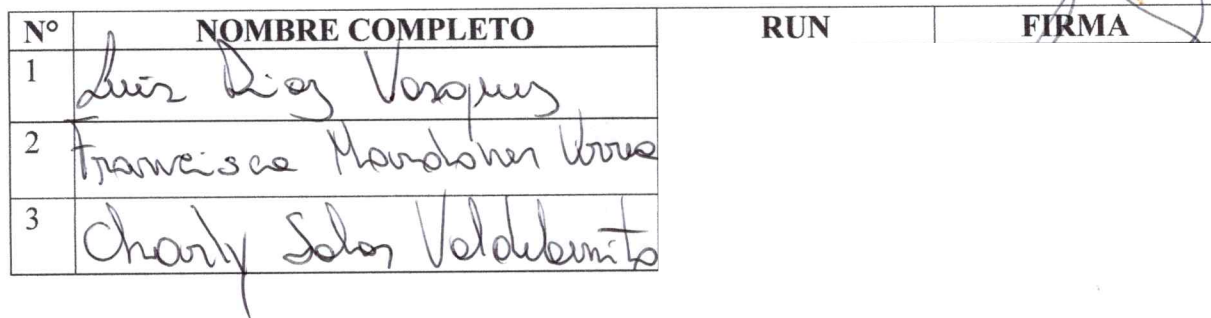 N° NOMBRE COMPLETO RUN FIRMA
1 Luis Diaz Vasquez
2 Francisca Mardones Urrea
3 Charly Salas Valdebenito